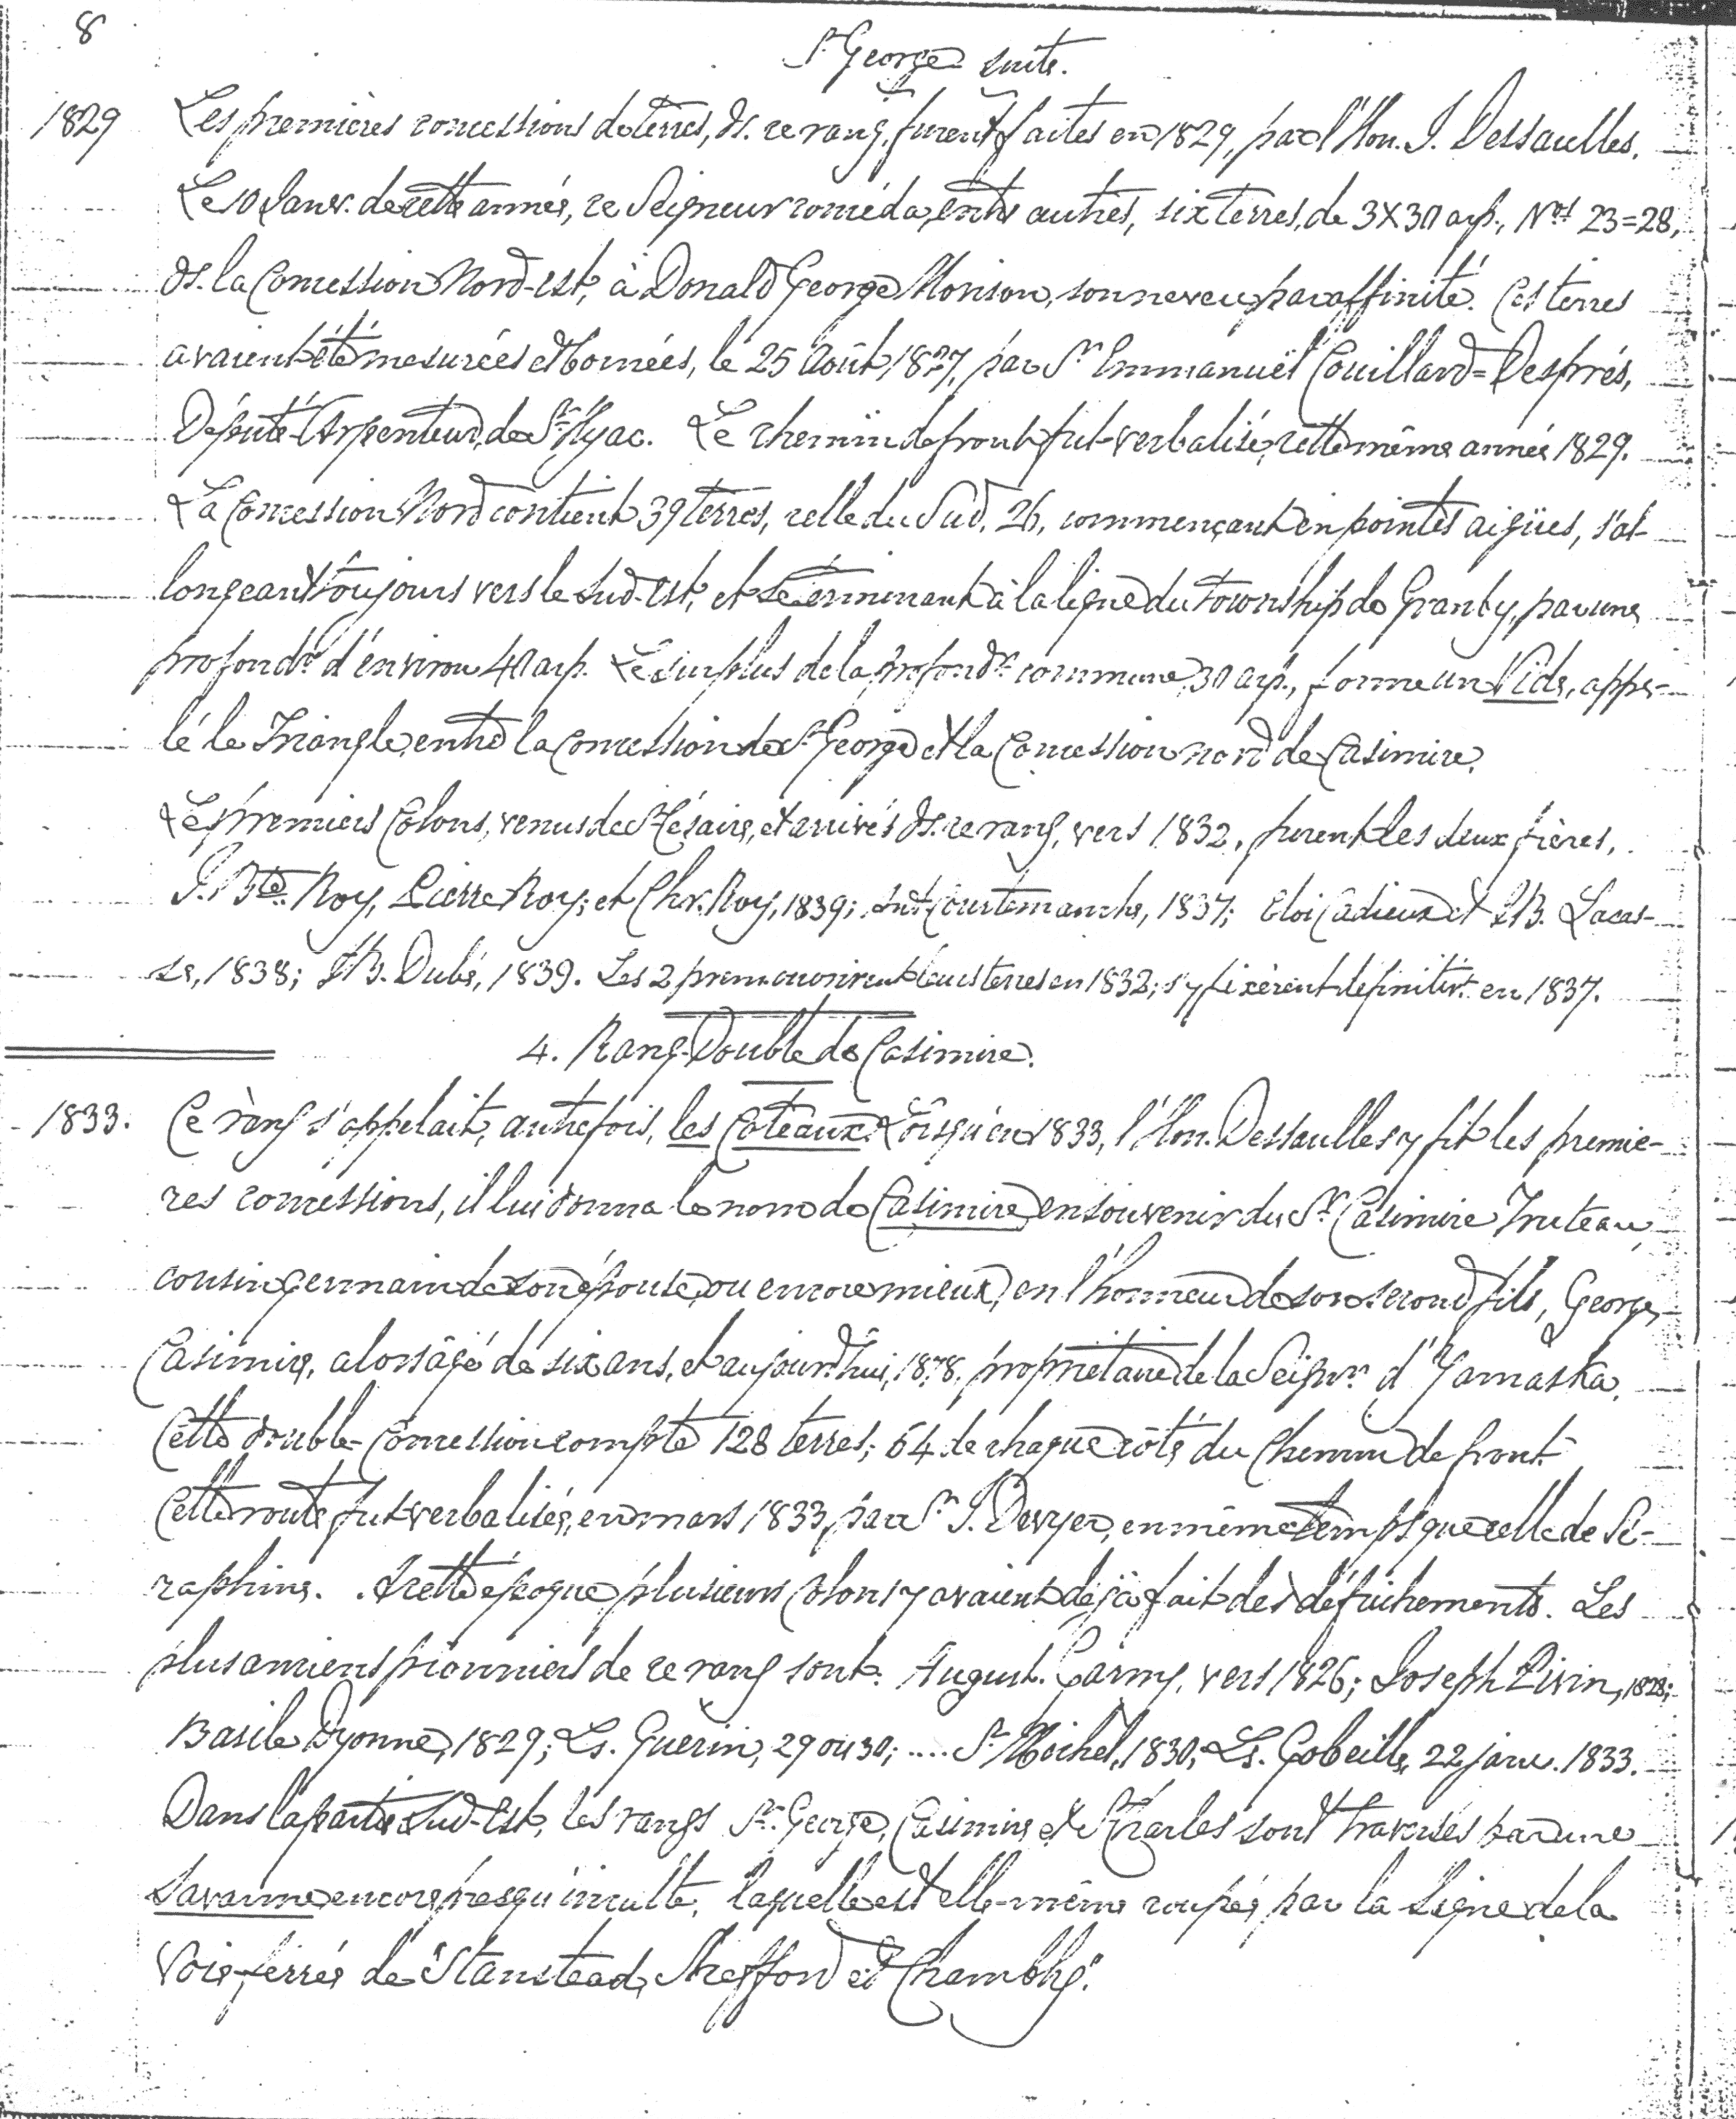 8
St George suite.
1829 Les premières concessions de terres, ds. ce rang, furent faites en 1829, par l'Hon. J. Dessaulles.
Le 10 Janv. de cette année, ce Seigneur concéda, entre autres, six terres, de 3X30 arp., Nos 23=28,
ds. la Concession Nord-est, à Donald George Morison, son neveu par affinité. Ces terres
avaient été mesurées et bornées, le 25 Août 1827, par Sr Emmanuël Couillard=Després,
Député-Arpenteur, de St Hyac. Le chemin de front fut verbalisé, cette même année 1829.
La Concession Nord contient 39 terres, celle du Sud, 26, commençant en pointes aigües, s'al-
longeant toujours vers le Sud-Est, et se terminant à la ligne du Township de Granby, par une
profondr d'environ 40 arp. Le surplus de la profondr commune, 30 arp., forme un Vide, appe-
lé le Triangle, entre la Concession de St George et la Concession nord de Casimire.
Les premiers Colons, venus de St Césaire, et arrivés ds. ce rang, vers 1832, furent les deux frères,
J. Bte Roy, Pierre Roy; et Chr. Roy, 1839; Courtemanche, 1837; Eloi Cadieux et J.B. Lacas-
se, 1838; J.B. Dubé, 1839. Les 2 prem. ouvrirent leurs terres en 1832; s'y fixèrent définitivt. en 1837.
4. Rang-Double de Casimire.
1833. Ce rang s'appelait, autrefois, les Côteaux. Lorsqu'en 1833, l'Hon. Dessaulles y fit les premiè-
res concessions, il lui donna le nom de Casimire, en souvenir du Sr Casimire Truteau,
cousin germain de son épouse, ou encore mieux, en l'honneur de son second fils, George
Casimire, alors âgé de six ans, et aujourd'hui, 1878, propriétaire de la Seignr. d'Yamaska.
Cette double-Concession compte 128 terres; 64 de chaque côté du Chemin de front.
Cette route fut verbalisée, en mars 1833, par Sr J. Dwyer, en même temps que celle de Sé-
raphine. A cette époque, plusieurs Colons y avaient déjà fait des défrichements. Les
plus anciens pionniers de ce rang sont: August. vers 1826; Joseph Livin, 1828;
Basile Dyonne, 1829; Ls. Guérin, 29 ou 30; .... St Michel, 1830; Ls. Gobeille, 22 janv. 1833.
Dans la partie Sud-Est, les rangs St. George, Casimire et St Charles sont traversés par une
Savanne encore presqu'inculte, laquelle est elle-même coupée par la Ligne de la
Voie-ferrée de Stanstead, Shefford et Chambly.